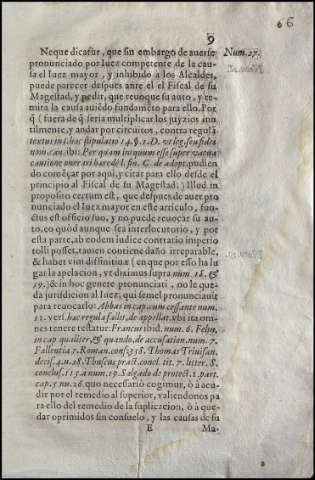 66
9
Neque dicatur, que sin embargo de averse Num. 27.
pronunciado por Iuez competente de la cau-
sa el Iuez mayor, y inhibido a los Alcaldes,
puede parecer despues ante el el Fiscal de su
Magestad, y pedir, que revoque su auto, y re-
mita la causa aviẽdo fundamẽto para ello. Por
q̃ (fuera de q̃ seria multiplicar los juyzios inu-
tilmente, y andar por circuitos, contra regulã
textus in l. hac stipulatio 14. §. 1. D. vt leg. seu fidei
nom. cau. ibi: Per quam iniquum esse superuacua
cautione onerari hæredẽ l. fin. C. de adopt. pudien
do comẽçar por aqui, y citar para ello desde el
principio al Fiscal de su Magestad) Illud in
proposito certum est, que despues de auer pro
nunciado el Iuez mayor en este articulo, fun-
ctus est officio suo, y no puede revocar su au-
to, eo quòd aunque sea interlocutorio, y por
esta parte, ab eodem iudice contrario imperio
tolli posset, tamen contiene daño irreparable,
& habet vim diffinitiua (en que por esso ha lu
gar la apelacion, vt diximus supra num. 18. &
19.) & in hoc genere pronunciati, no le que-
da juridicion al Iuez, qui semel pronunciauit
para revocarlo: Abbas in cap. cum cessante num.
11. vers. hac regula fallit, de appellat. vbi ita om-
nes tenere testatur: Francus ibid. num. 6. Felyn.
in cap. qualiter, & quando, de accusation. num. 7.
Fallentia 7. Roman. cons. 358. Thomas Trivisan.
decis. 4. n. 28. Thuscus pract. concl. tit. 7. litter. S.
conclus. 115. a num. 19. Salgado de protect. 1. part.
cap. 5. nu. 26. quo necessariò cogimur, ò a acu-
dir por el remedio al superior, valiendonos pa
ra ello del remedio de la suplicacion, ò a que-
dar oprimidos sin consuelo, y las causas de su
E Ma-